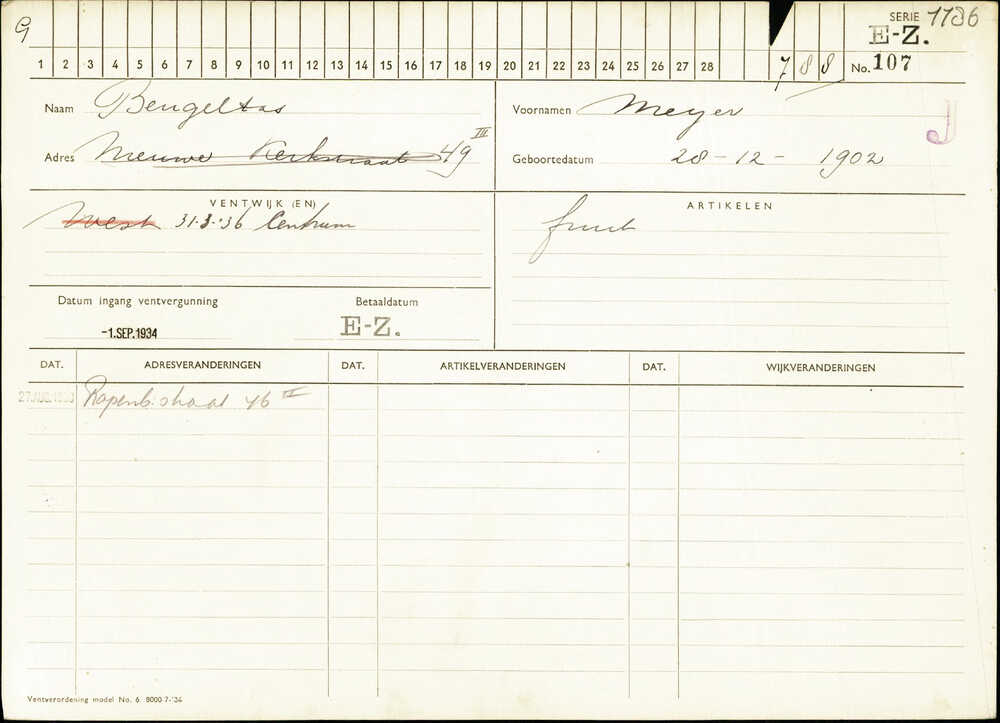 G
SERIE 1736
E-Z.
1 2 3 4 5 6 7 8 9 10 11 12 13 14 15 16 17 18 19 20 21 22 23 24 25 26 27 28 7 8 8 No. 107
Naam Beugeltas
Voornamen Meyer
J
Adres Nieuwe Kerkstraat 49 III
Geboortedatum 28-12-1902
VENTWIJK (EN)
West 31-3-'36 Centrum
ARTIKELEN
fruit
Datum ingang ventvergunning Betaaldatum
-1.SEP.1934 E-Z.
DAT. ADRESVERANDERINGEN DAT. ARTIKELVERANDERINGEN DAT. WIJKVERANDERINGEN
27 AUG. Rapenb.straat 46 II
Ventverordening model No. 6. 8000-7-'34